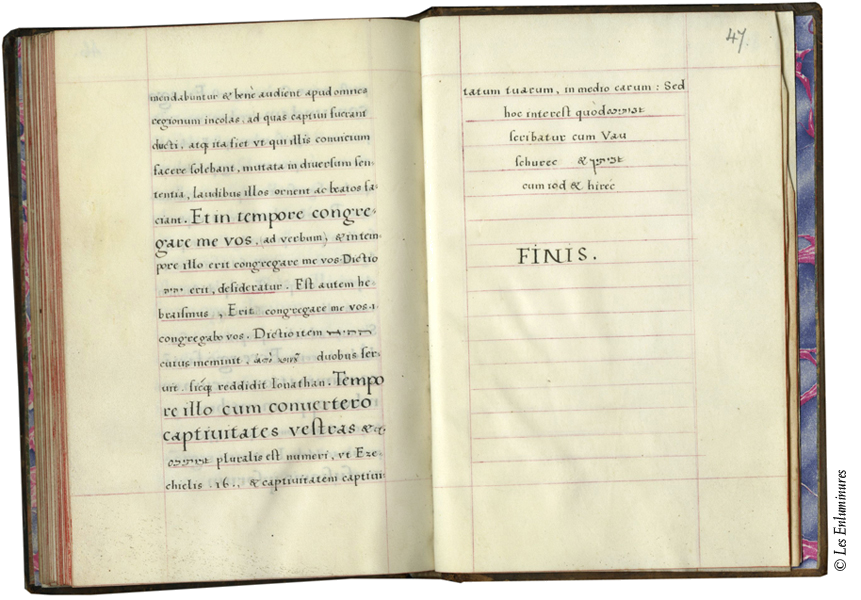 mendabuntur & benè audient apud omnes
regionum incolas, ad quas captivi fuerant
ducti, atq; ita fiet vt qui illis comuicium
facere solebant, mutata in diuersum sen-
tentia, laudibus illos ornent ac beatos fa-
ciant. Et in tempore congre-
gare me vos, ad verbum, & in tem-
pore illo erit congregare me vos. Dictio
erit, desideratur. Est autem he-
braismus, Erit congregare me vos .i.
congregabo vos. Dictio item
cuius meminit, duobus ser-
uit. sicq; reddidit Ionathan. Tempo
re illo cum conuertero
captiuitates vestras &c.
pluralis est numeri, vt Eze-
chielis .16.. & captiuitatem captiui
47.
tatum tuarum, in medio earum : Sed
hoc interest quòd
scribatur cum Vau
schurec &
cum iòd & hirec
FINIS.
© Les Enluminures